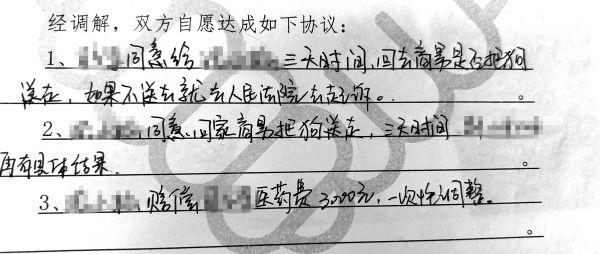 经调解，双方自愿达成如下协议：
1、同意给三天时间，回去商量是否把狗
送走，如果不送走就去人民法院去起诉。。
2、同意回家商量把狗送走，三天时间
再有具体结果。
3、赔偿医药费3000元，一次性调整。
。